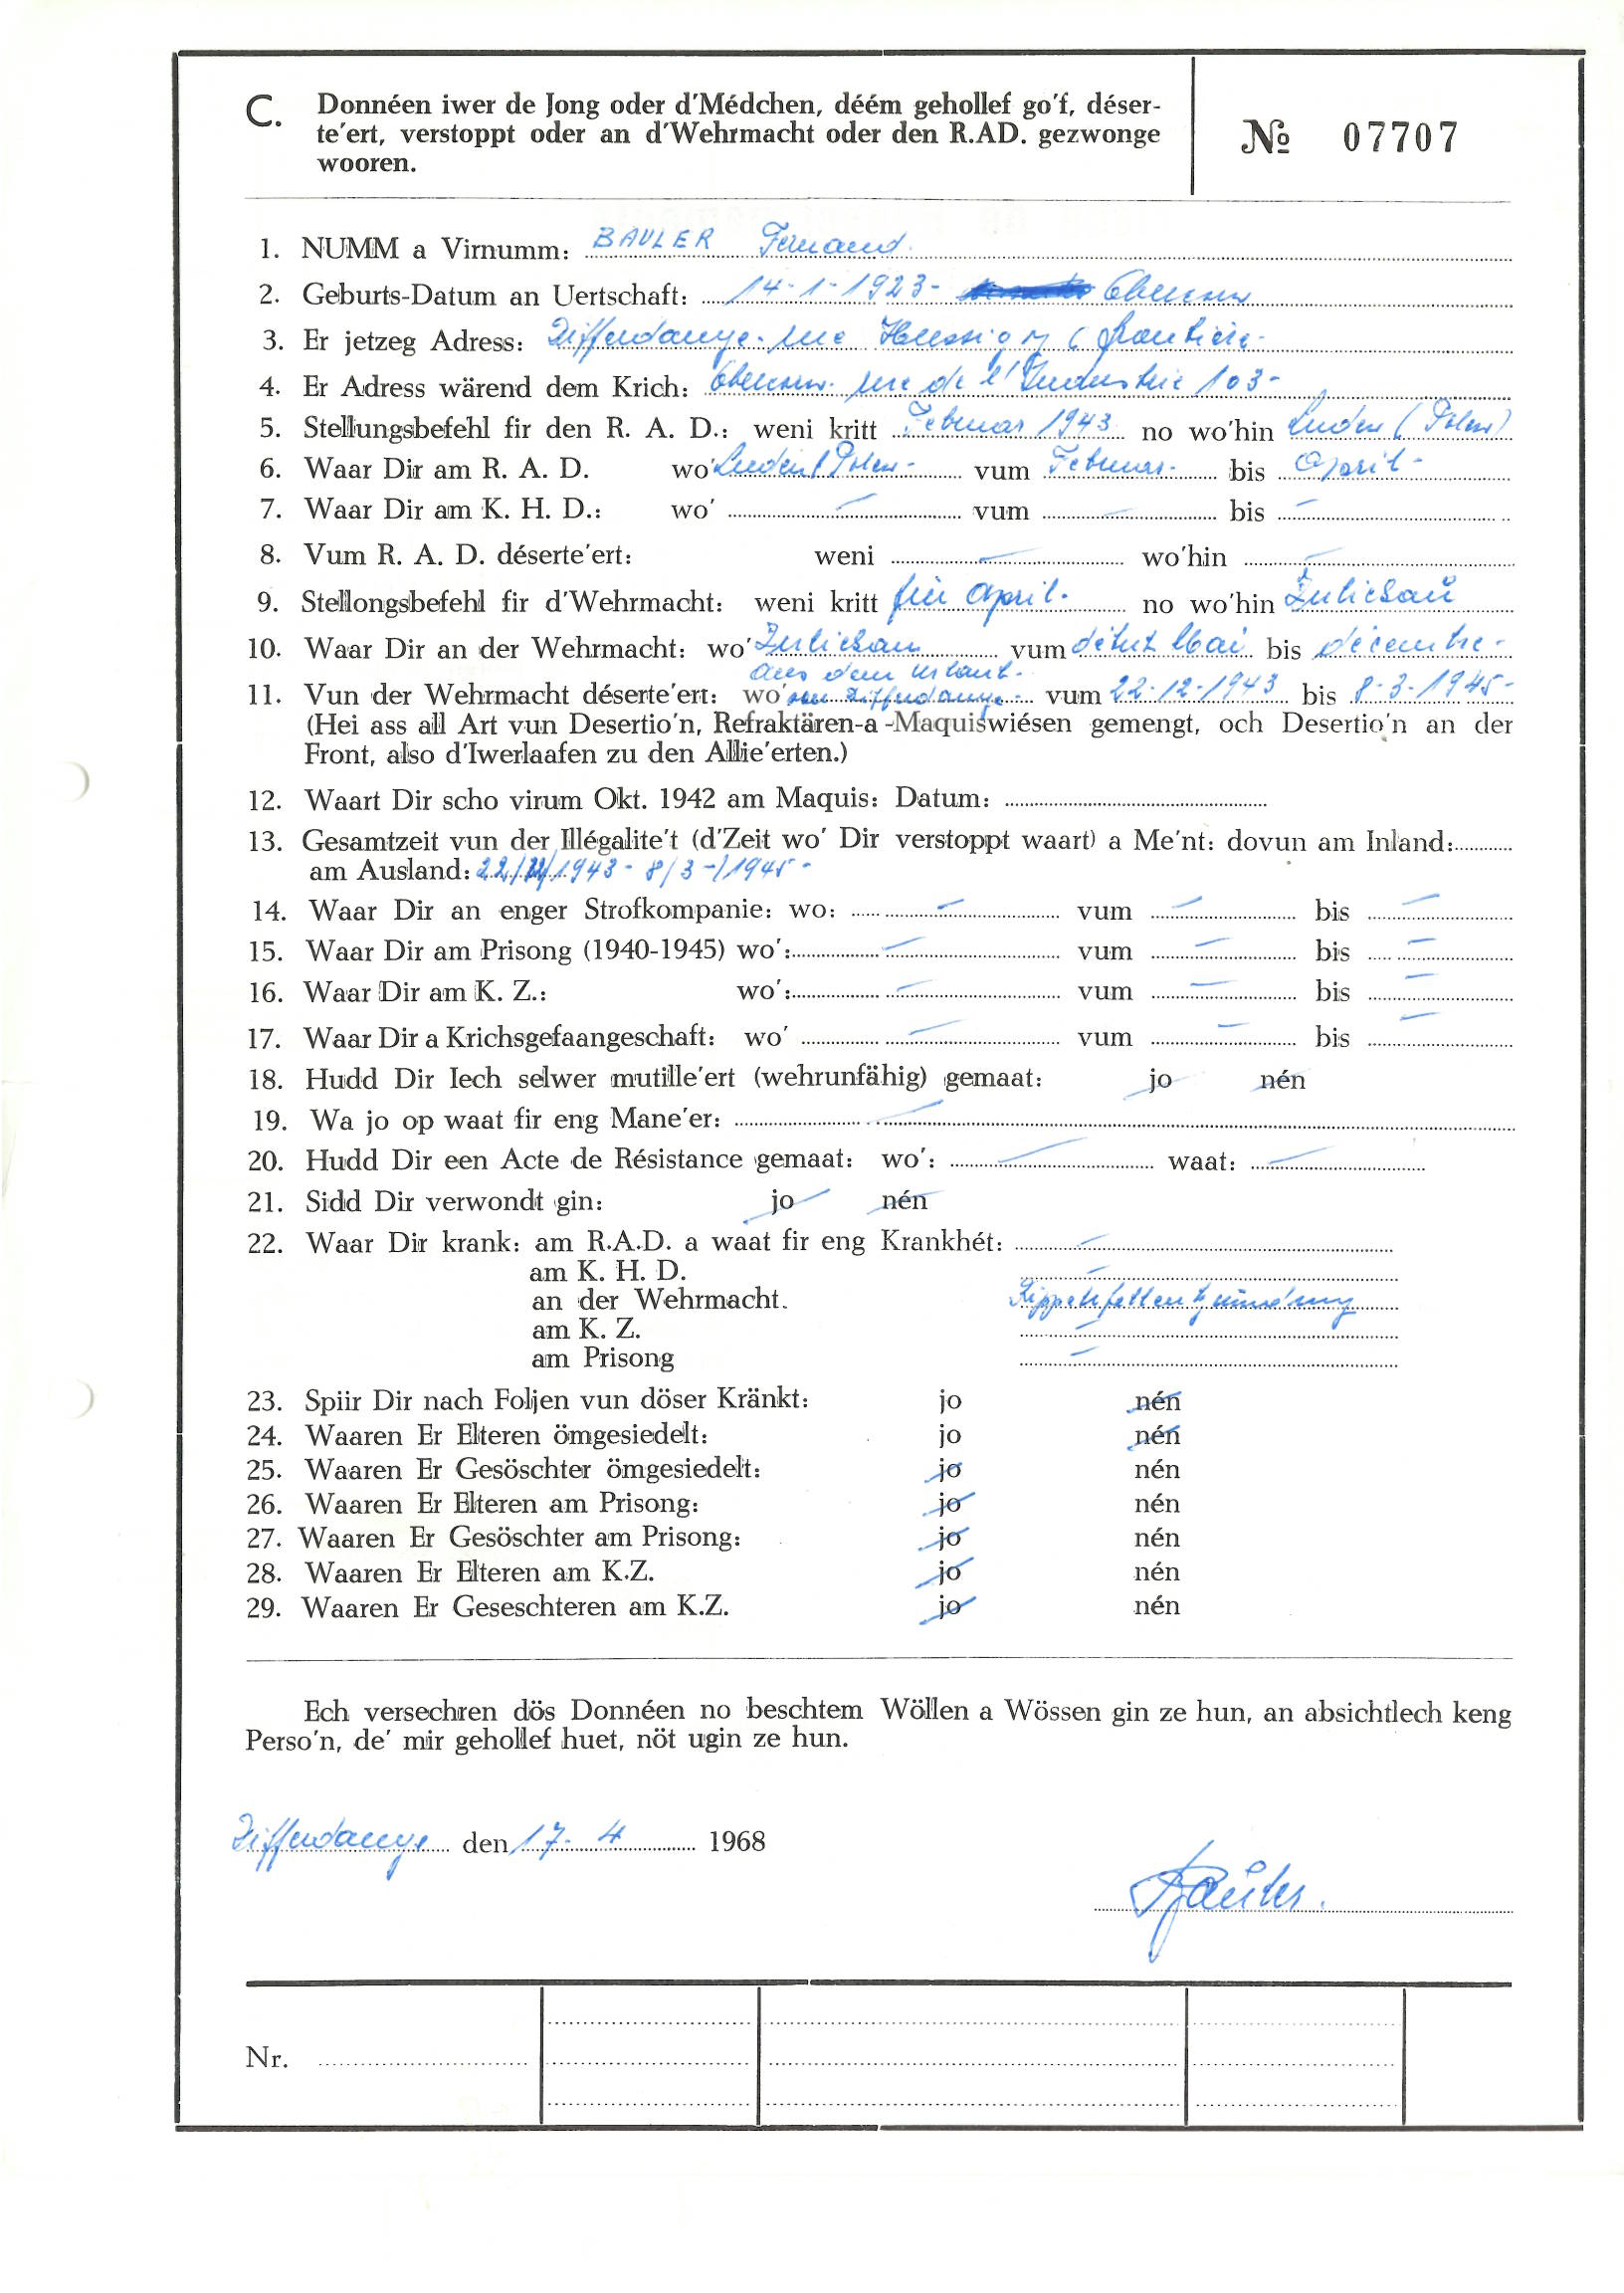 C. Donnéen iwer de Jong oder d'Médchen, déém gehollef go'f, déser-
te'ert, verstoppt oder an d'Wehrmacht oder den R.AD. gezwonge
wooren.
№ 07707
1. NUMM a Virnumm: BAULER Fernand.
2. Geburts-Datum an Uertschaft: 14-1-1923-
3. Er jetzeg Adress: Differdange. rue Hussigny (frontière-
4. Er Adress wärend dem Krich: rue de l'Industrie 103-
5. Stellungsbefehl fir den R. A. D.: weni kritt Februar 1943 no wo'hin (Polen)
6. Waar Dir am R. A. D. wo' vum Februar- bis April-
7. Waar Dir am K. H. D.: wo' – vum – bis –
8. Vum R. A. D. déserte'ert: weni – wo'hin –
9. Stellongsbefehl fir d'Wehrmacht: weni kritt fin April. no wo'hin Zulichau
10. Waar Dir an der Wehrmacht: wo' Zulichau vum début Mai bis décembre-
aus dem Urlaub-
11. Vun der Wehrmacht déserte'ert: wo' Differdange- vum 22-12-1943 bis 8-3-1945-
(Hei ass all Art vun Desertio'n, Refraktären-a-Maquiswiésen gemengt, och Desertio'n an der
Front, also d'Iwerlaafen zu den Allie'erten.)
12. Waart Dir scho virum Okt. 1942 am Maquis: Datum:
13. Gesamtzeit vun der Illégalite't (d'Zeit wo' Dir verstoppt waart) a Me'nt: dovun am Inland:
am Ausland: 22/12/1943- 8/3-/1945-
14. Waar Dir an enger Strofkompanie: wo: – vum – bis –
15. Waar Dir am Prisong (1940-1945) wo': – vum – bis –
16. Waar Dir am K. Z.: wo': – vum – bis –
17. Waar Dir a Krichsgefaangeschaft: wo' – vum – bis –
18. Hudd Dir Iech selwer mutille'ert (wehrunfähig) gemaat: jo nén
19. Wa jo op waat fir eng Mane'er: –
20. Hudd Dir een Acte de Résistance gemaat: wo': – waat: –
21. Sidd Dir verwondt gin: jo nén
22. Waar Dir krank: am R.A.D. a waat fir eng Krankhét: –
am K. H. D. –
an der Wehrmacht. Rippenfellentzündung
am K. Z. –
am Prisong –
23. Spiir Dir nach Foljen vun döser Kränkt: jo nén
24. Waaren Er Elteren ömgesiedelt: jo nén
25. Waaren Er Gesöschter ömgesiedelt: jo nén
26. Waaren Er Elteren am Prisong: jo nén
27. Waaren Er Gesöschter am Prisong: jo nén
28. Waaren Er Elteren am K.Z. jo nén
29. Waaren Er Geseschteren am K.Z. jo nén
Ech versechren dös Donnéen no beschtem Wöllen a Wössen gin ze hun, an absichtlech keng
Perso'n, de' mir gehollef huet, nöt ugin ze hun.
Differdange den 17-4 1968
Bauler.
Nr.